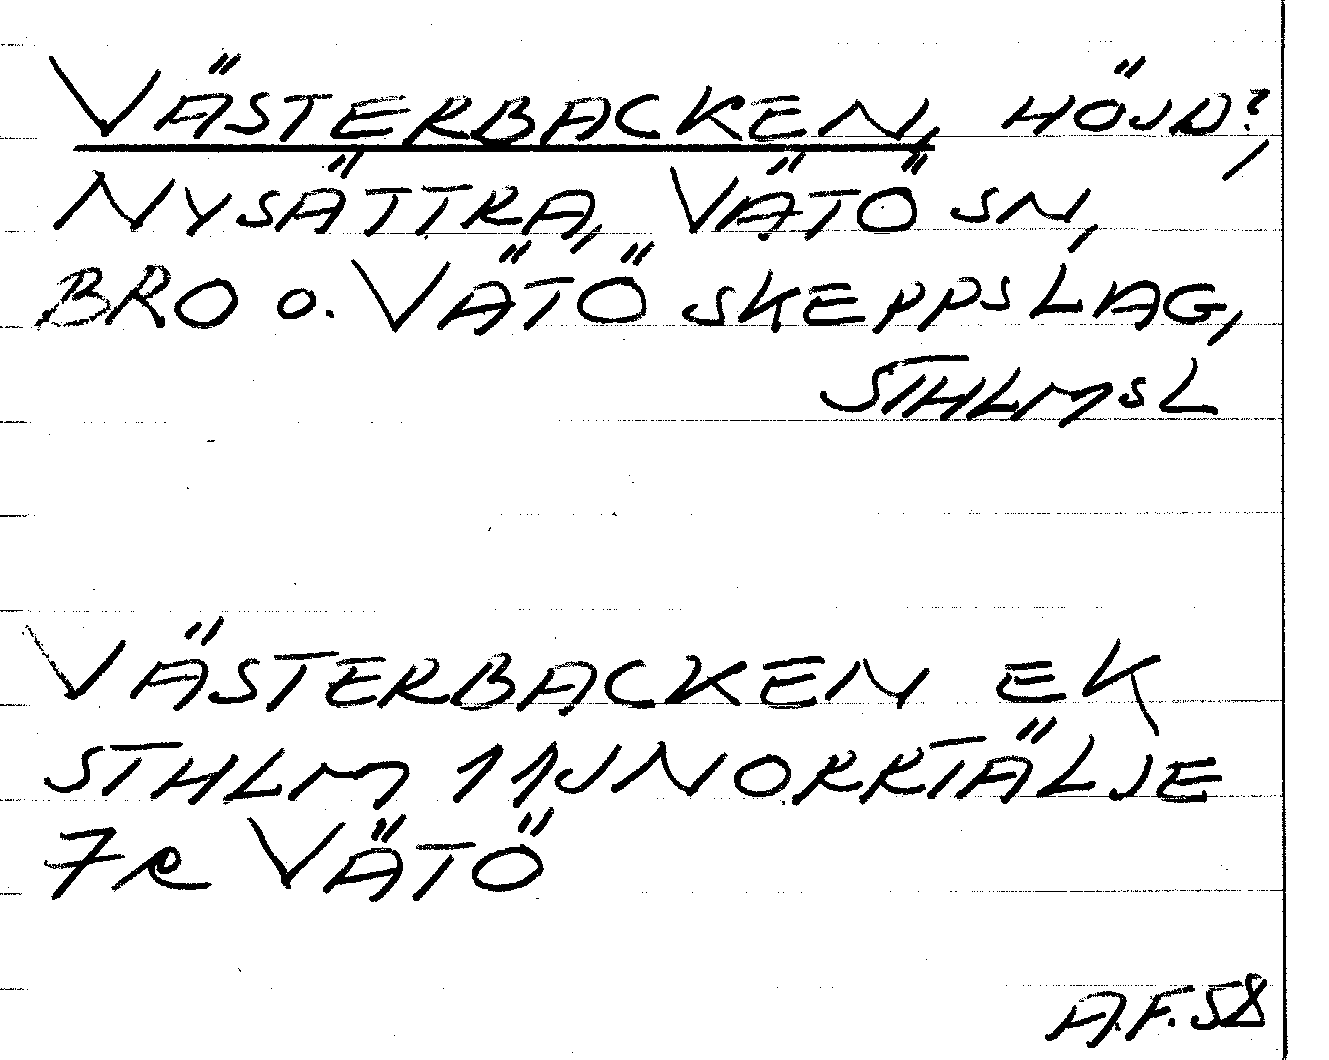 VÄSTERBACKEN, HÖJD?,
NYSÄTTRA, VÄTÖ SN,
BRO O. VÄTÖ SKEPPSLAG,
STHLMSL
VÄSTERBACKEN EK
STHLM 11J NORRTÄLJE
7R VÄTÖ
A.F.58